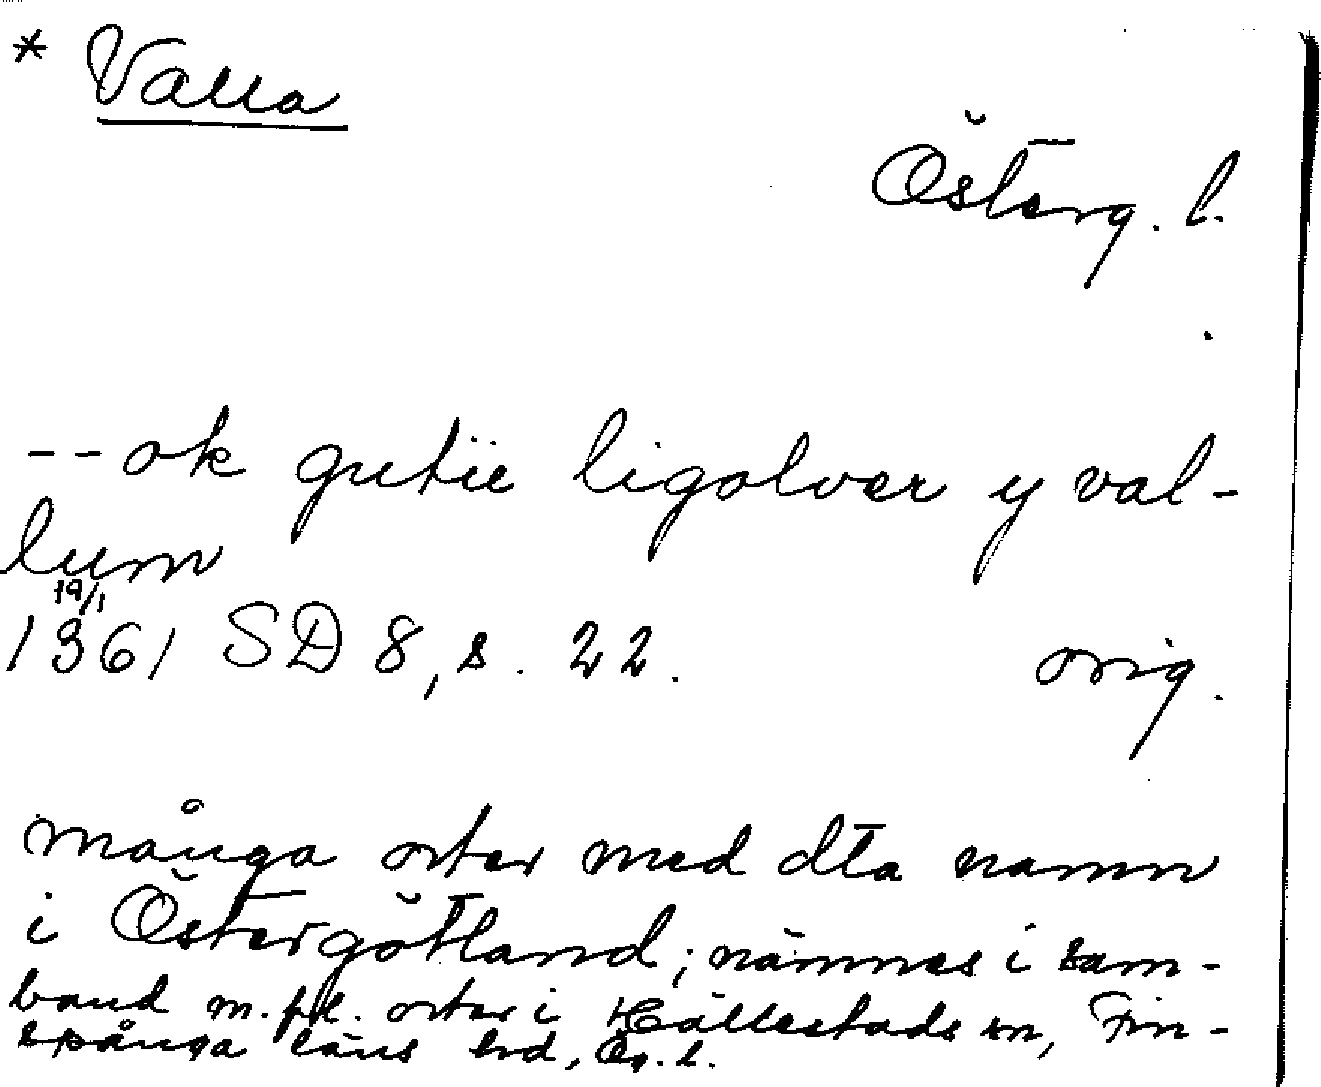 * Valla
Österg. l.
-- ok gutïe ligolver y val-
lum
19/1
1361 SD 8, s. 22. orig.
många orter med dta namn
i Östergötland; nämnes i sam-
band m. fl. orter i Hällestads sn, Fin-
spånga läns hd, Ög. l.